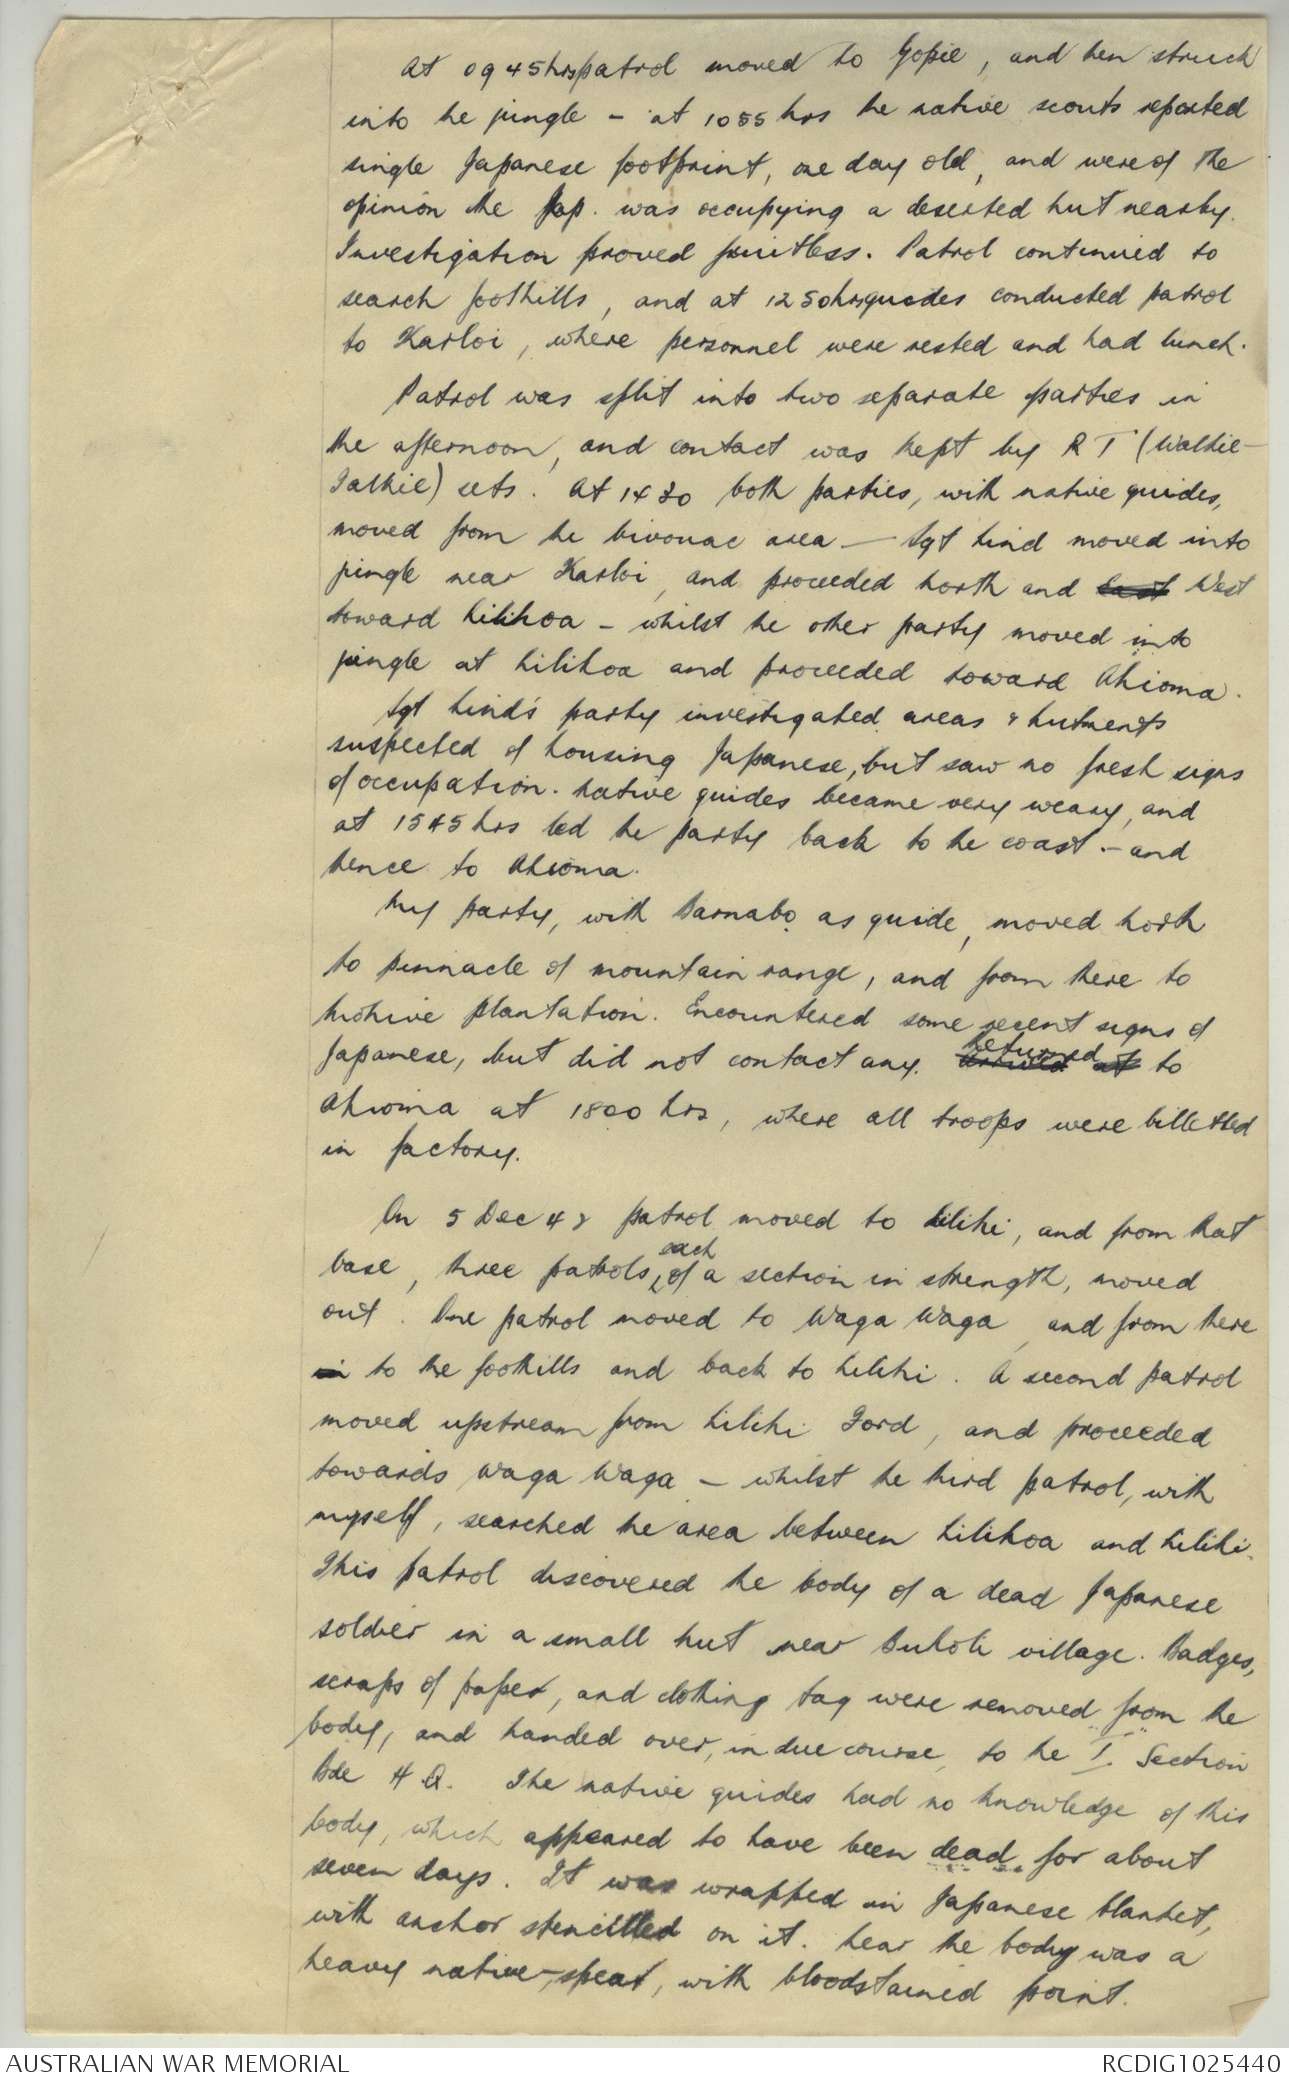 At 0945hrs patrol moved to Gopie, and then struck
into the jungle - at 1055 hrs the native scouts reported
single Japanese footprint, one day old, and were of the
opinion the Jap. was occupying a deserted hut nearby.
Investigation proved fruitless. Patrol continued to
search foothills, and at 1250hrs guides conducted patrol
to Karloi, where personnel were rested and had lunch.
Patrol was split into two separate parties in
the afternoon, and contact was kept by R T (Walkie-
Talkie) sets. At 1430 both parties, with native guides,
moved from the bivouac area - Sgt Hind moved into
jungle near Karloi, and proceeded North and East West
toward Lilihoa - whilst the other party moved into
jungle at Lilihoa and proceeded toward Ahioma.
Sgt Hind's party investigated areas & hutments
suspected of housing Japanese, but saw no fresh signs
of occupation. Native guides became very weary, and
at 1545 hrs led the party back to the coast - and
thence to Ahioma.
My party, with Barnabo as guide, moved North
to pinnacle of mountain range, and from there to
plantation. Encountered some recent signs of
Japanese, but did not contact any. arrived at returned to
Ahioma at 1800 hrs, where all troops were billetted
in factory.
On 5 Dec 42 patrol moved to Lilihi, and from that
base, three patrols, each of a section in strength, moved
out. One patrol moved to Waga Waga, and from there
in to the foothills and back to Lilihi. A second patrol
moved upstream from Lilihi Ford, and proceeded
towards Waga Waga - whilst the third patrol, with
myself, searched the area between Lilihoa and Lilihi.
This patrol discovered the body of a dead Japanese
soldier in a small hut near village. Badges,
scraps of paper, and clothing tag were removed from the
body, and handed over, in due course, to the "I" Section
Bde H Q. The native guides had no knowledge of this
body, which appeared to have been dead for about
seven days. It was wrapped in Japanese blanket,
with anchor stencilled on it. Near the body was a
heavy native-spear, with bloodstained point.
AUSTRALIAN WAR MEMORIAL
RCDIG1025440